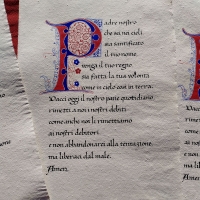 Padre nostro
che sei nei cieli
sia santificato
il tuo nome
venga il tuo regno
sia fatta la tua volontà
come in cielo così in terra.
Dacci oggi il nostro pane quotidiano
rimetti a noi i nostri debiti
come anche noi li rimettiamo
ai nostri debitori
e non abbandonarci alla tentazione
ma liberaci dal male.
Amen.